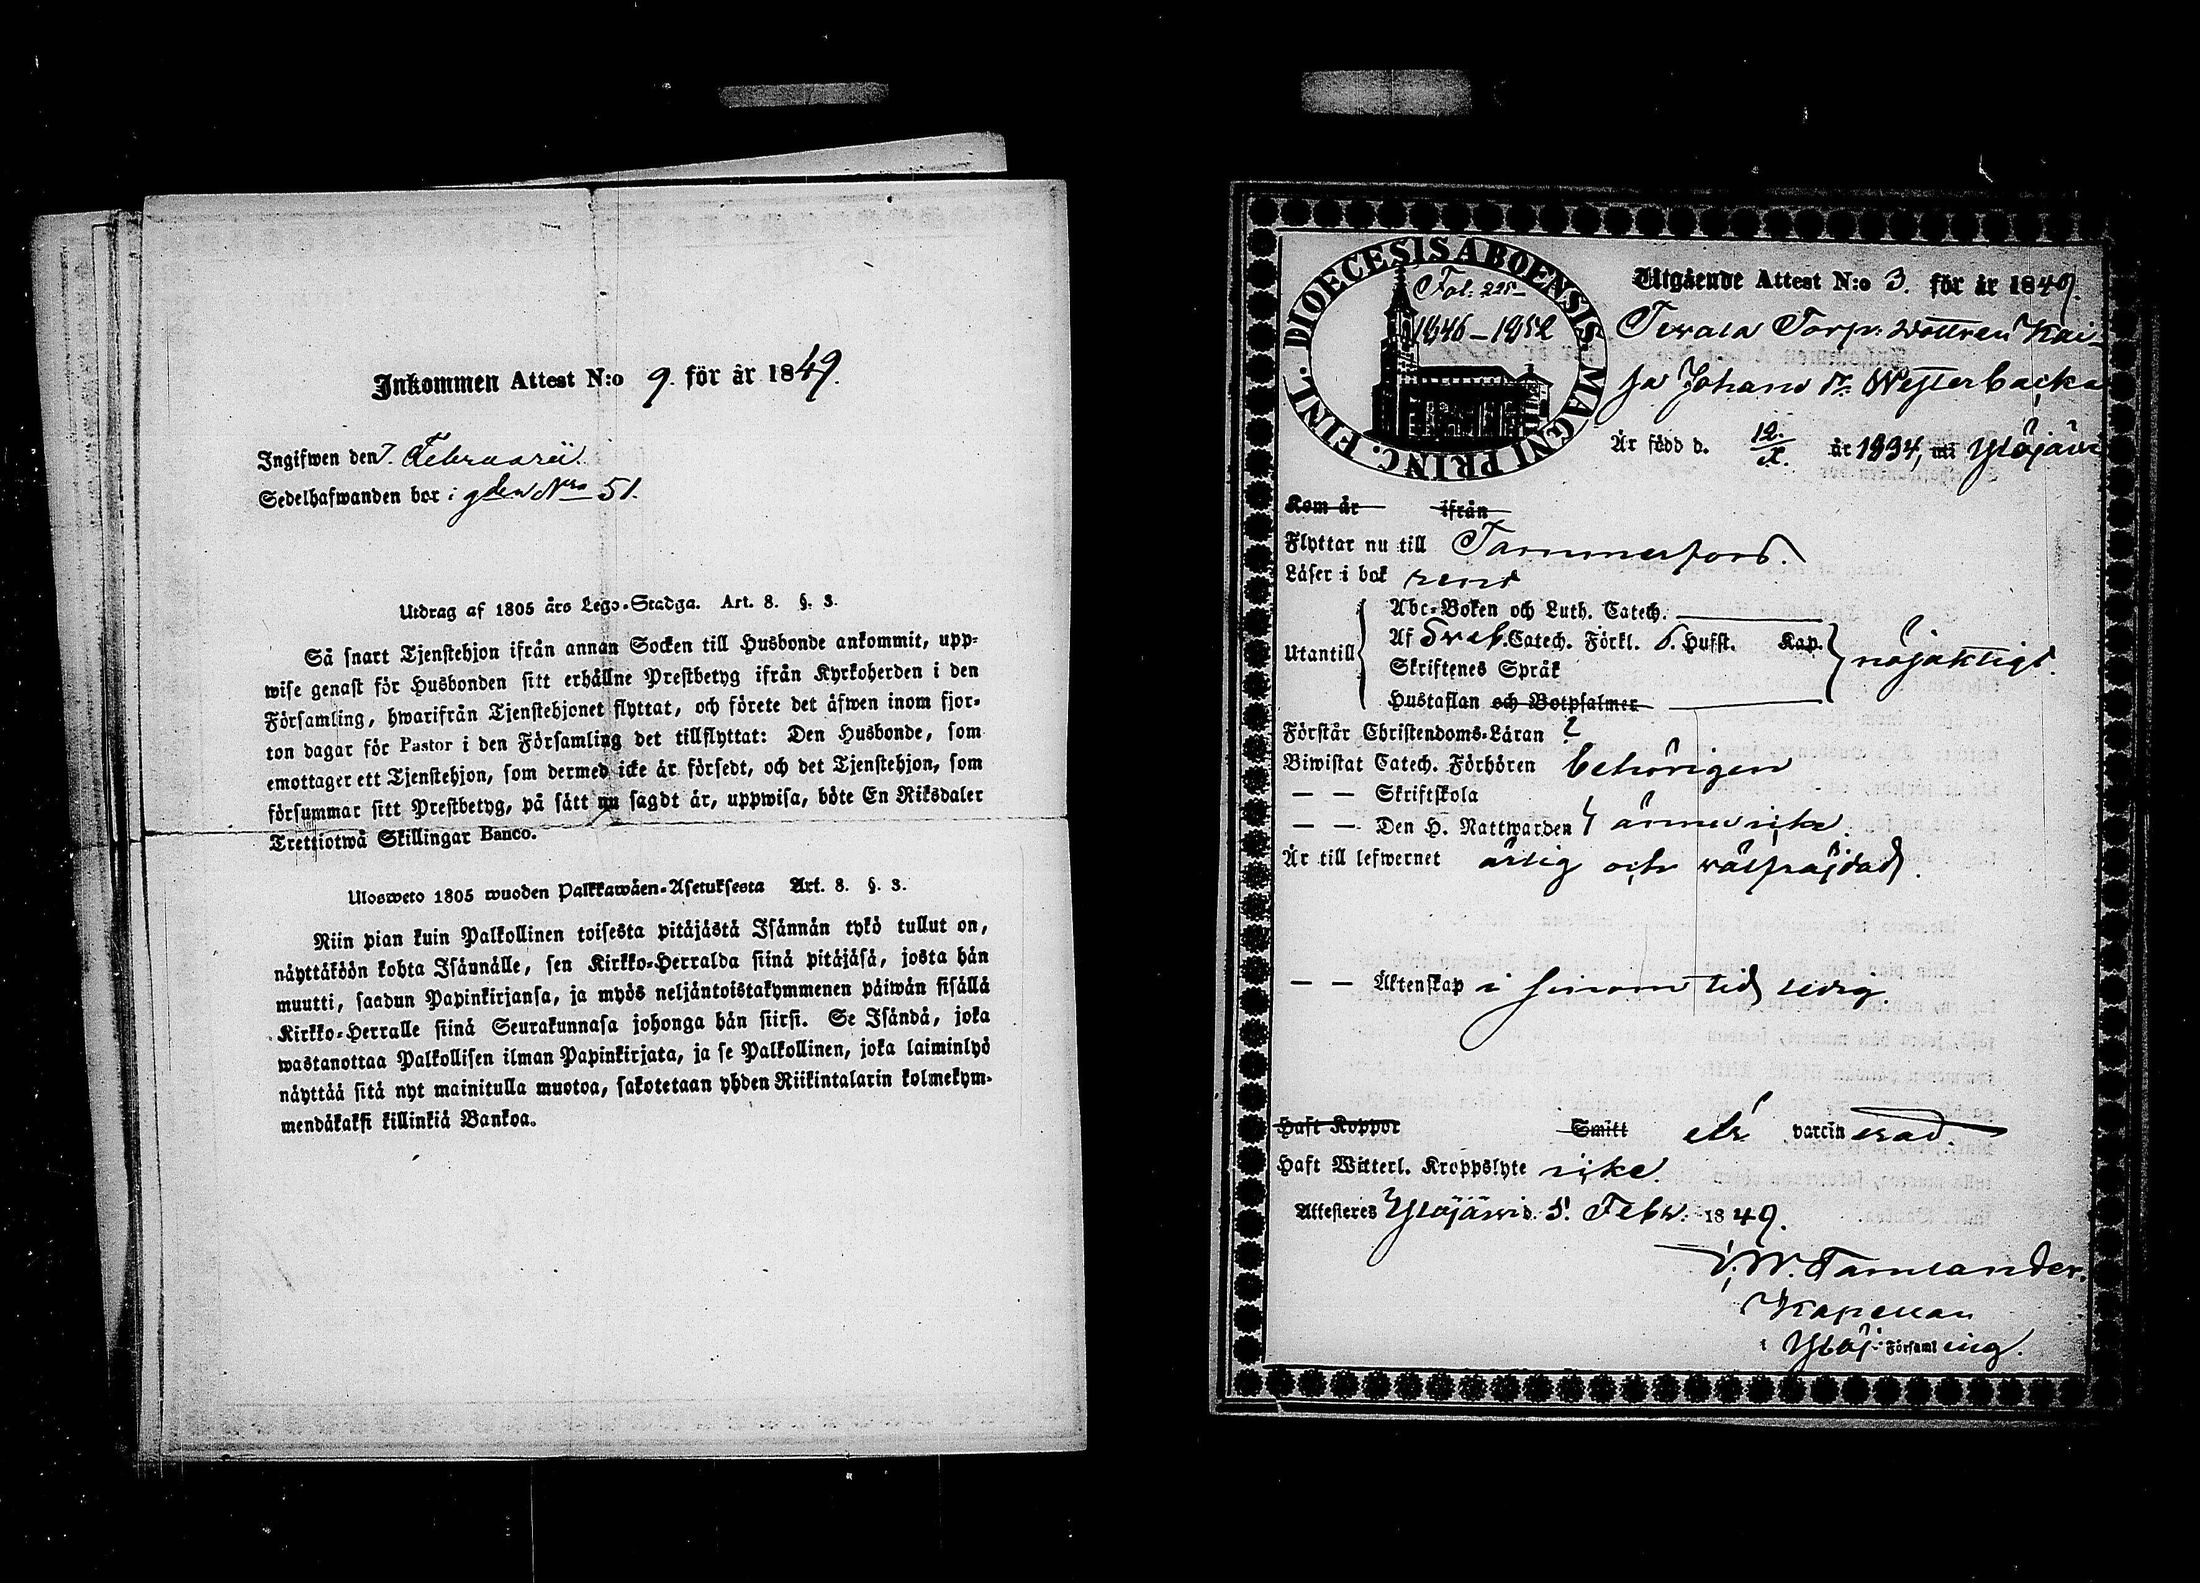 Inkommen Attest N:o 9. för år 1849.
Ingifwen den 7. Februarii.
Sedelhafwanden bor i gden Nro 51.
Utdrag af 1805 års Lego-Stadga. Art. 8. §. 3.
Så snart Tjenstehjon ifrån annan Socken till Husbonde ankommit, upp-
wise genast för Husbonden sitt erhållne Prestbetyg ifrån Kyrkoherden i den
Församling, hwarifrån Tjenstehjonet flyttat, och förete det äfwen inom fjor-
ton dagar för Pastor i den Församling det tillflyttat: Den Husbonde, som
emottager ett Tjenstehjon, som dermed icke är försedt, och det Tjenstehjon, som
försummar sitt Prestbetyg, på sätt nu sagdt är, uppwisa, böte En Riksdaler
Trettiotwå Skillingar Banco.
Ulosweto 1805 wuoden Palkkawäen-Asetuksesta Art. 8. §. 3.
Niin pian kuin Palkollinen toisesta pitäjästä Isännän tykö tullut on,
näyttäköön kohta Isännälle, sen Kirkko-Herralda siinä pitäjäsä, josta hän
muutti, saadun Papinkirjansa, ja myös neljäntoistakymmenen päiwän sisällä
Kirkko-Herralle siinä Seurakunnasa johonga hän siirsi. Se Isändä, joka
wastanottaa Palkollisen ilman Papinkirjata, ja se Palkollinen, joka laiminlyö
näyttää sitä nyt mainitulla muotoa, sakotetaan yhden Riikintalarin kolmekym-
mendäkaksi killinkiä Bankoa.
DIOECESIS ABOENSIS. MAGNI PRINC. FINL.
Fol: 225
1846-1852
Utgående Attest N:o 3. för år 1849.
Torp: dottren Kai-
sa Johans dr Westerbacka
Är född d. 12/X. år 1834, uti Ylöjärvi
Kom år ifrån
Flyttar nu till Tammerfors.
Läser i bok rent
Utantill
Abc-Boken och Luth. Catech.
Af Sveb. Catech. Förkl. 5. Hufst. Kap.
Skriftenes Språk
Hustaflan och Botpsalmer
nöjaktigt.
Förstår Christendoms-Läran
Biwistat Catech. Förhören behörigen
— — Skriftskola
— — Den H. Nattwarden } ännu icke.
Är till lefwernet ärlig och välfräjdad.
— — Äktenskap i sinom tid ledig.
Haft Koppor Smitt eller vaccinerad.
Haft Witterl. Kroppslyte icke.
Attesteres Ylöjärvi d. 5. Febr. 1849.
Kapellan
i Ylöj: Församling.